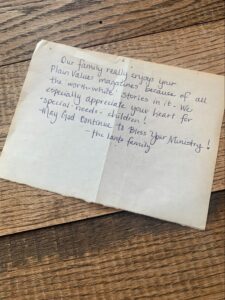 Our family really enjoys your
Plain Values magazines because of all
the worth-while stories in it. We
especially appreciate your heart for
"special-needs" children!
May God Continue to Bless Your Ministry!
- the family